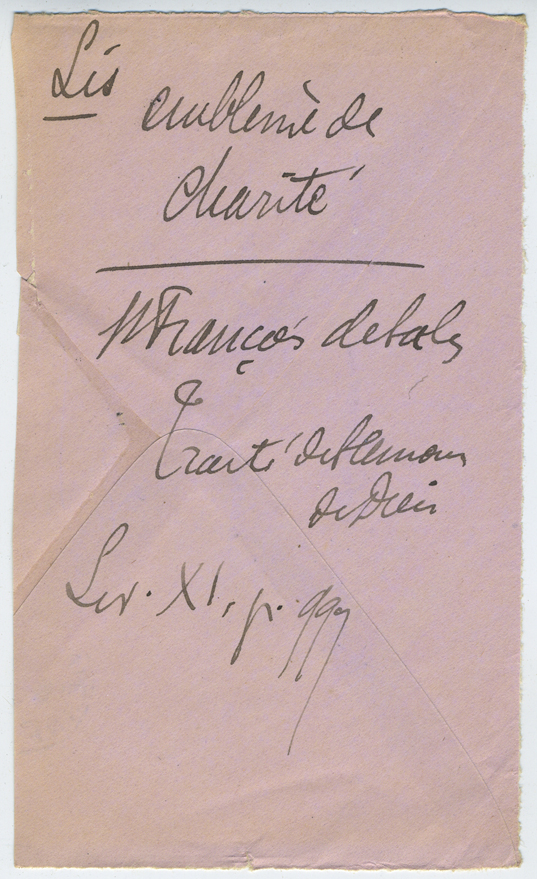 Lis
emblème de
charité
St François de Sales
Traité de l'amour
de Dieu
Liv. XI, p.